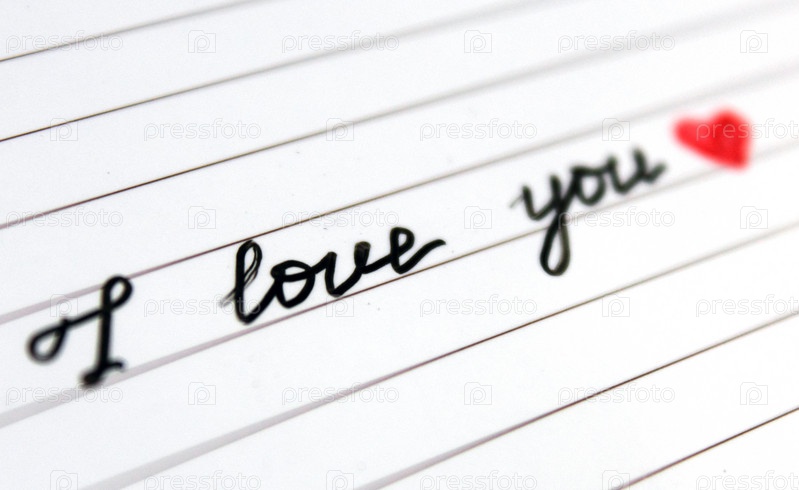 I love you
pressfoto